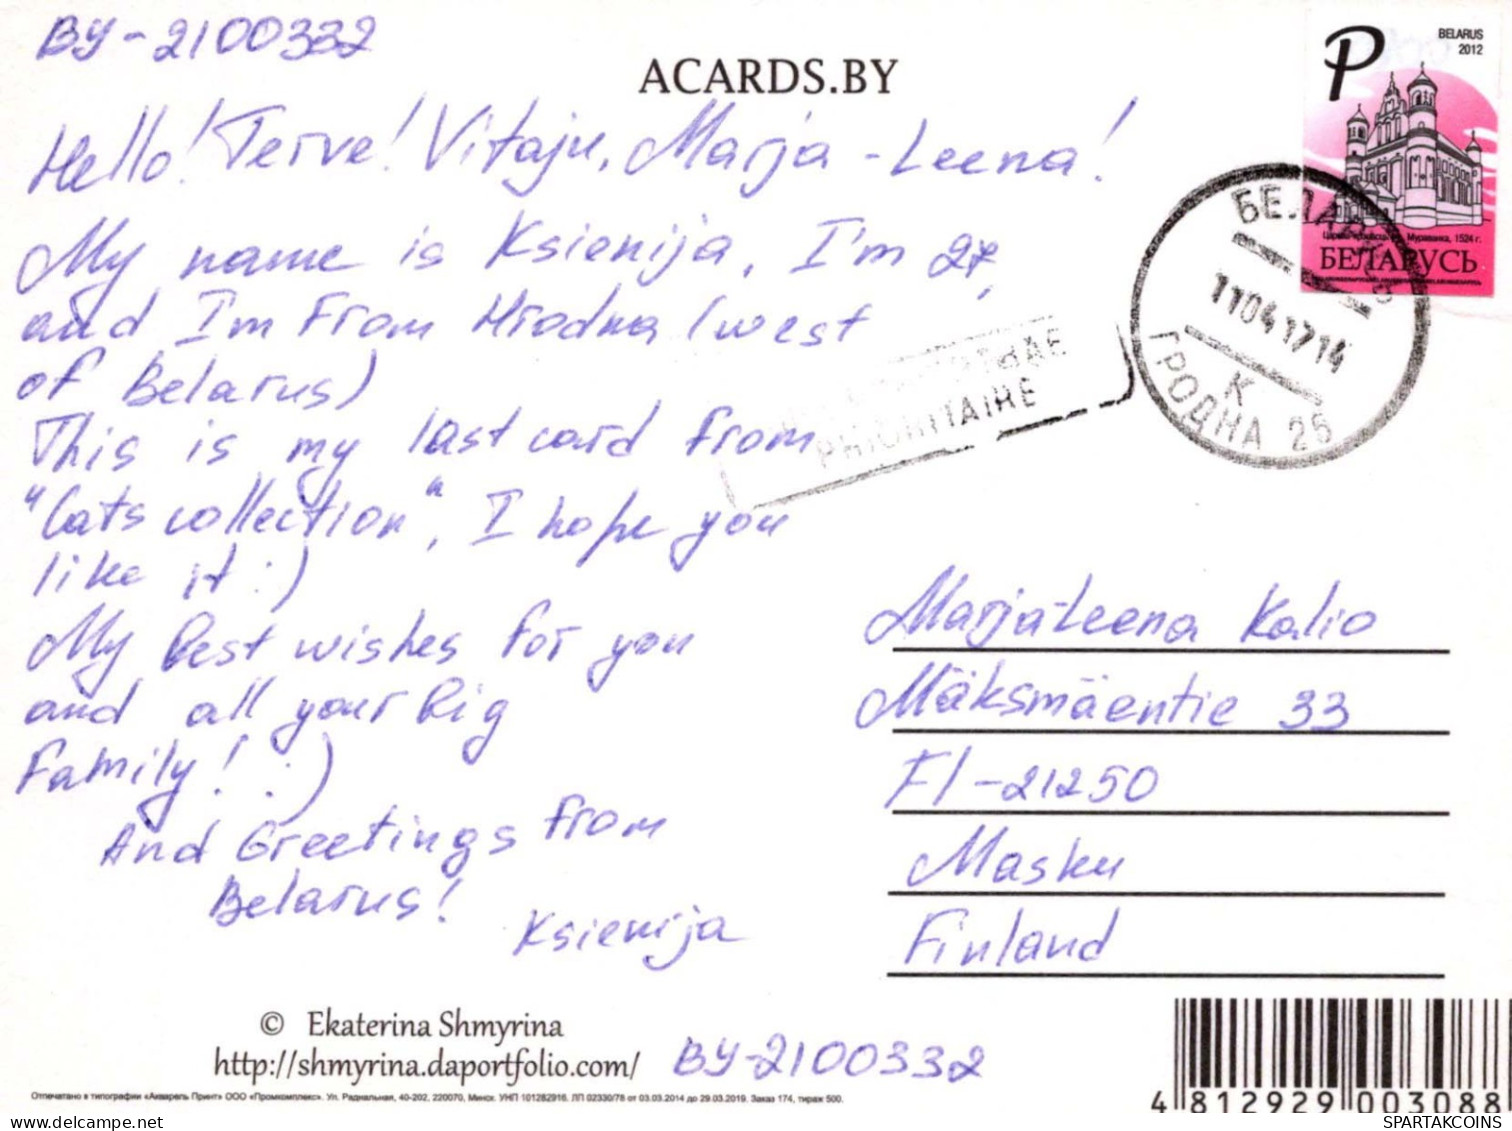 BY-2100332
ACARDS.BY
BELARUS
2012
P
Мураванка, 1524 г.
БЕЛАРУСЬ
БЕЛАРУСЬ
11041714
К
ГРОДНА 25
PRIORITAIRE
Hello! Terve! Vitaju, Marja-Leena!
My name is Ksienija, I'm 27,
and I'm from Hrodna (west
of Belarus)
This is my last card from
"Cats collection", I hope you
like it :)
My best wishes for you
and all your big
family! :)
And Greetings from
Belarus!
Ksienija
Marja-Leena Kalio
Mäksmäentie 33
FI-21250
Masku
Finland
© Ekaterina Shmyrina
http://shmyrina.daportfolio.com/
BY-2100332
Отпечатано в типографии «Акварель Принт» ООО «Промкомплекс». Ул. Радиальная, 40-202, 220070, Минск. УНП 101282916. ЛП 02330/78 от 03.03.2014 до 29.03.2019. Заказ 174, тираж 500.
4 812929 003088
www.delcampe.net
SPARTAKCOINS